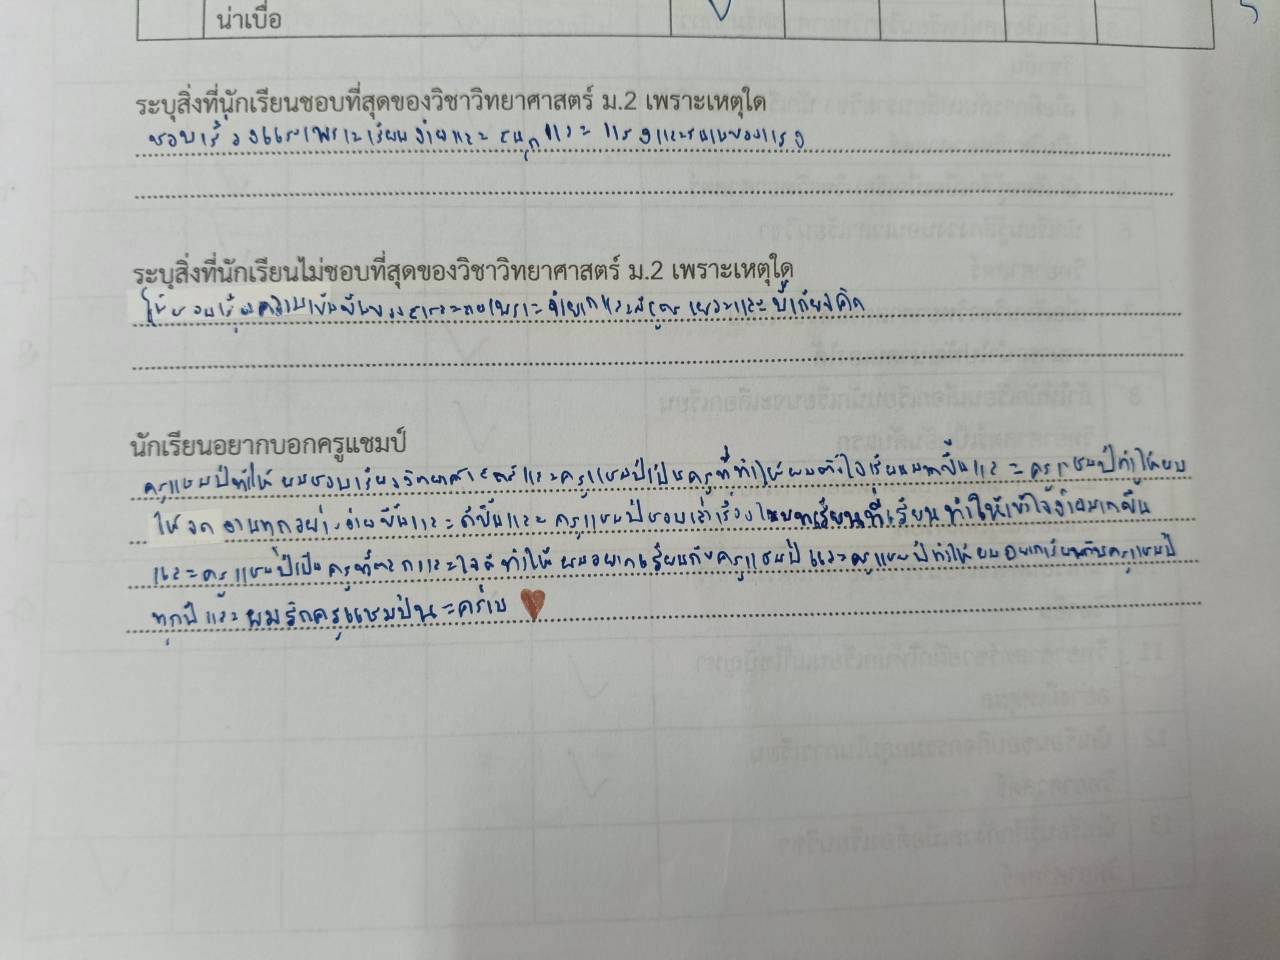 น่าเบื่อ
ระบุสิ่งที่นักเรียนชอบที่สุดของวิชาวิทยาศาสตร์ ม.2 เพราะเหตุใด
ชอบเรื่องแรงเพราะเรียนง่ายและสนุกและ แรงและขนาดของแรง
ระบุสิ่งที่นักเรียนไม่ชอบที่สุดของวิชาวิทยาศาสตร์ ม.2 เพราะเหตุใด
ไม่ชอบเรื่องความเข้มข้นของสารละลายเพราะจำยากและสูตรเยอะและขี้เกียจคิด
นักเรียนอยากบอกครูแชมป์
ครูแชมป์ทำให้ ผมชอบเรียนวิทยาศาสตร์และครูแชมป์เป็นครูที่ทำให้ผมตั้งใจเรียนมากขึ้นและครูแชมป์ทำให้ผม
ให้จดงานทุกอย่างง่ายขึ้นและดีขึ้นและครูแชมป์ชอบเล่าเรื่องในบทเรียนที่เรียนทำให้เข้าใจง่ายมากขึ้น
และครูแชมป์เป็นครูที่ตลกและใจดีทำให้ผมอยากเรียนกับครูแชมป์ และครูแชมป์ทำให้ผมอยากเรียนกับครูแชมป์
ทุกปี และผมรักครูแชมป์นะคร่าบ